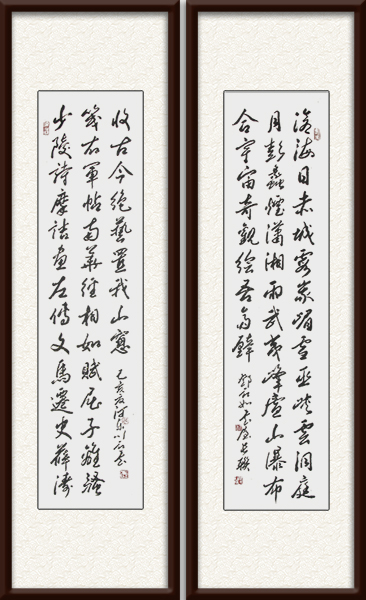 滄海日赤城霞峩嵋雪巫峡雲洞庭
月彭蠡煙瀟湘雨武夷峰廬山瀑布
合宇宙奇觀繪吾齋壁 鄧石如長聯
少陵詩摩詰畫左傳文馬遷史薛濤
箋右軍帖南華經相如賦屈子離騷
收古今絕藝置我山窗 己亥夏